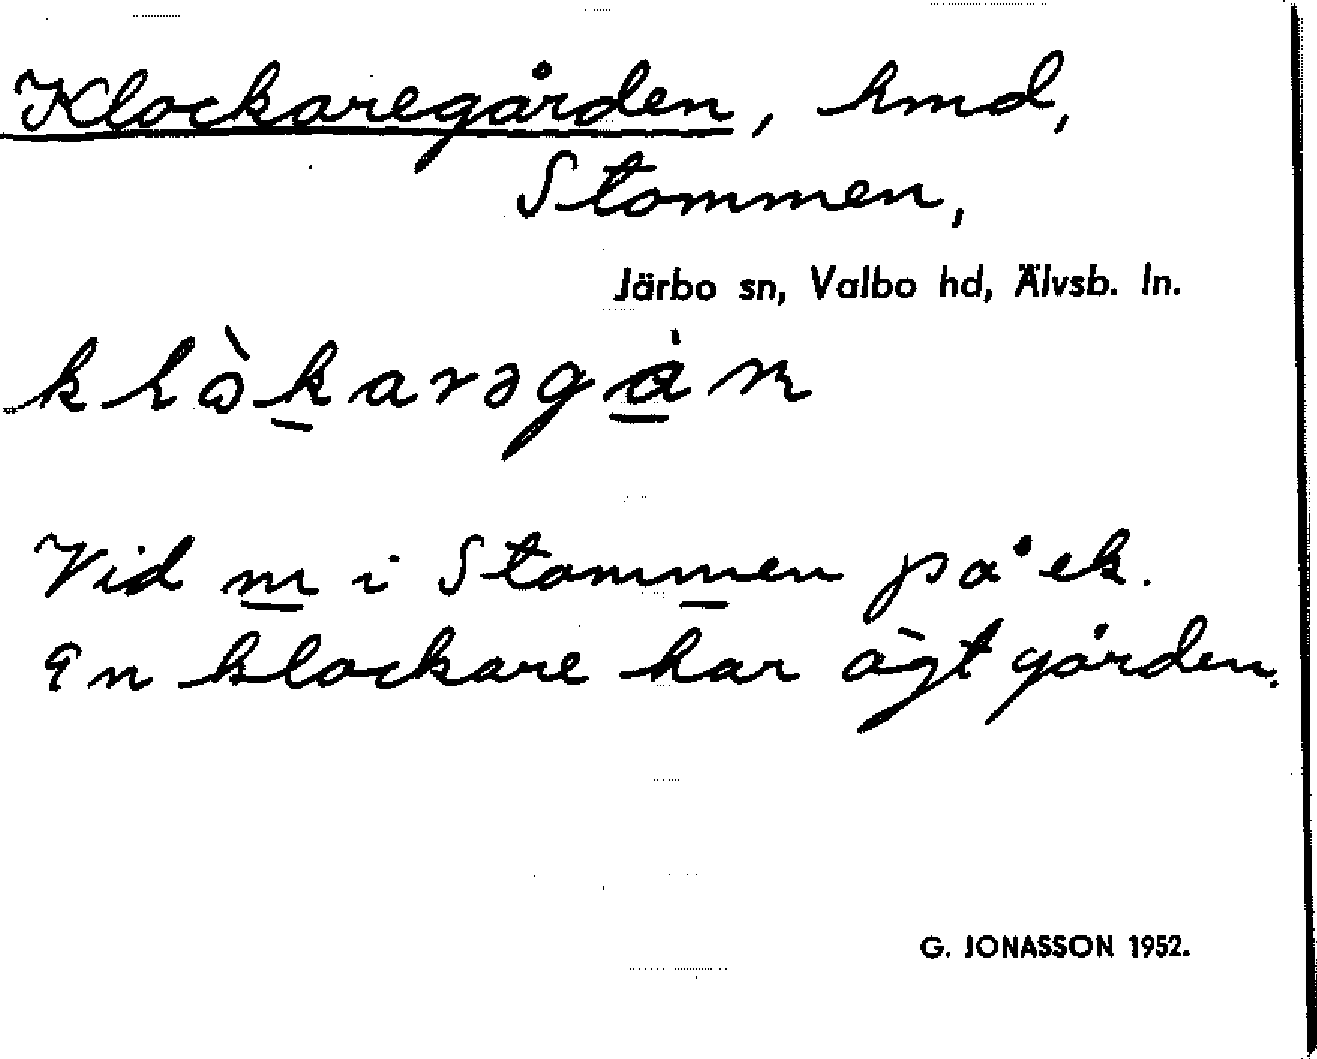 Klockaregården, hmd,
Stommen,
Järbo sn, Valbo hd, Älvsb. ln.
Vid m i Stommen på ek.
En klockare har ägt gården.
G. JONASSON 1952.